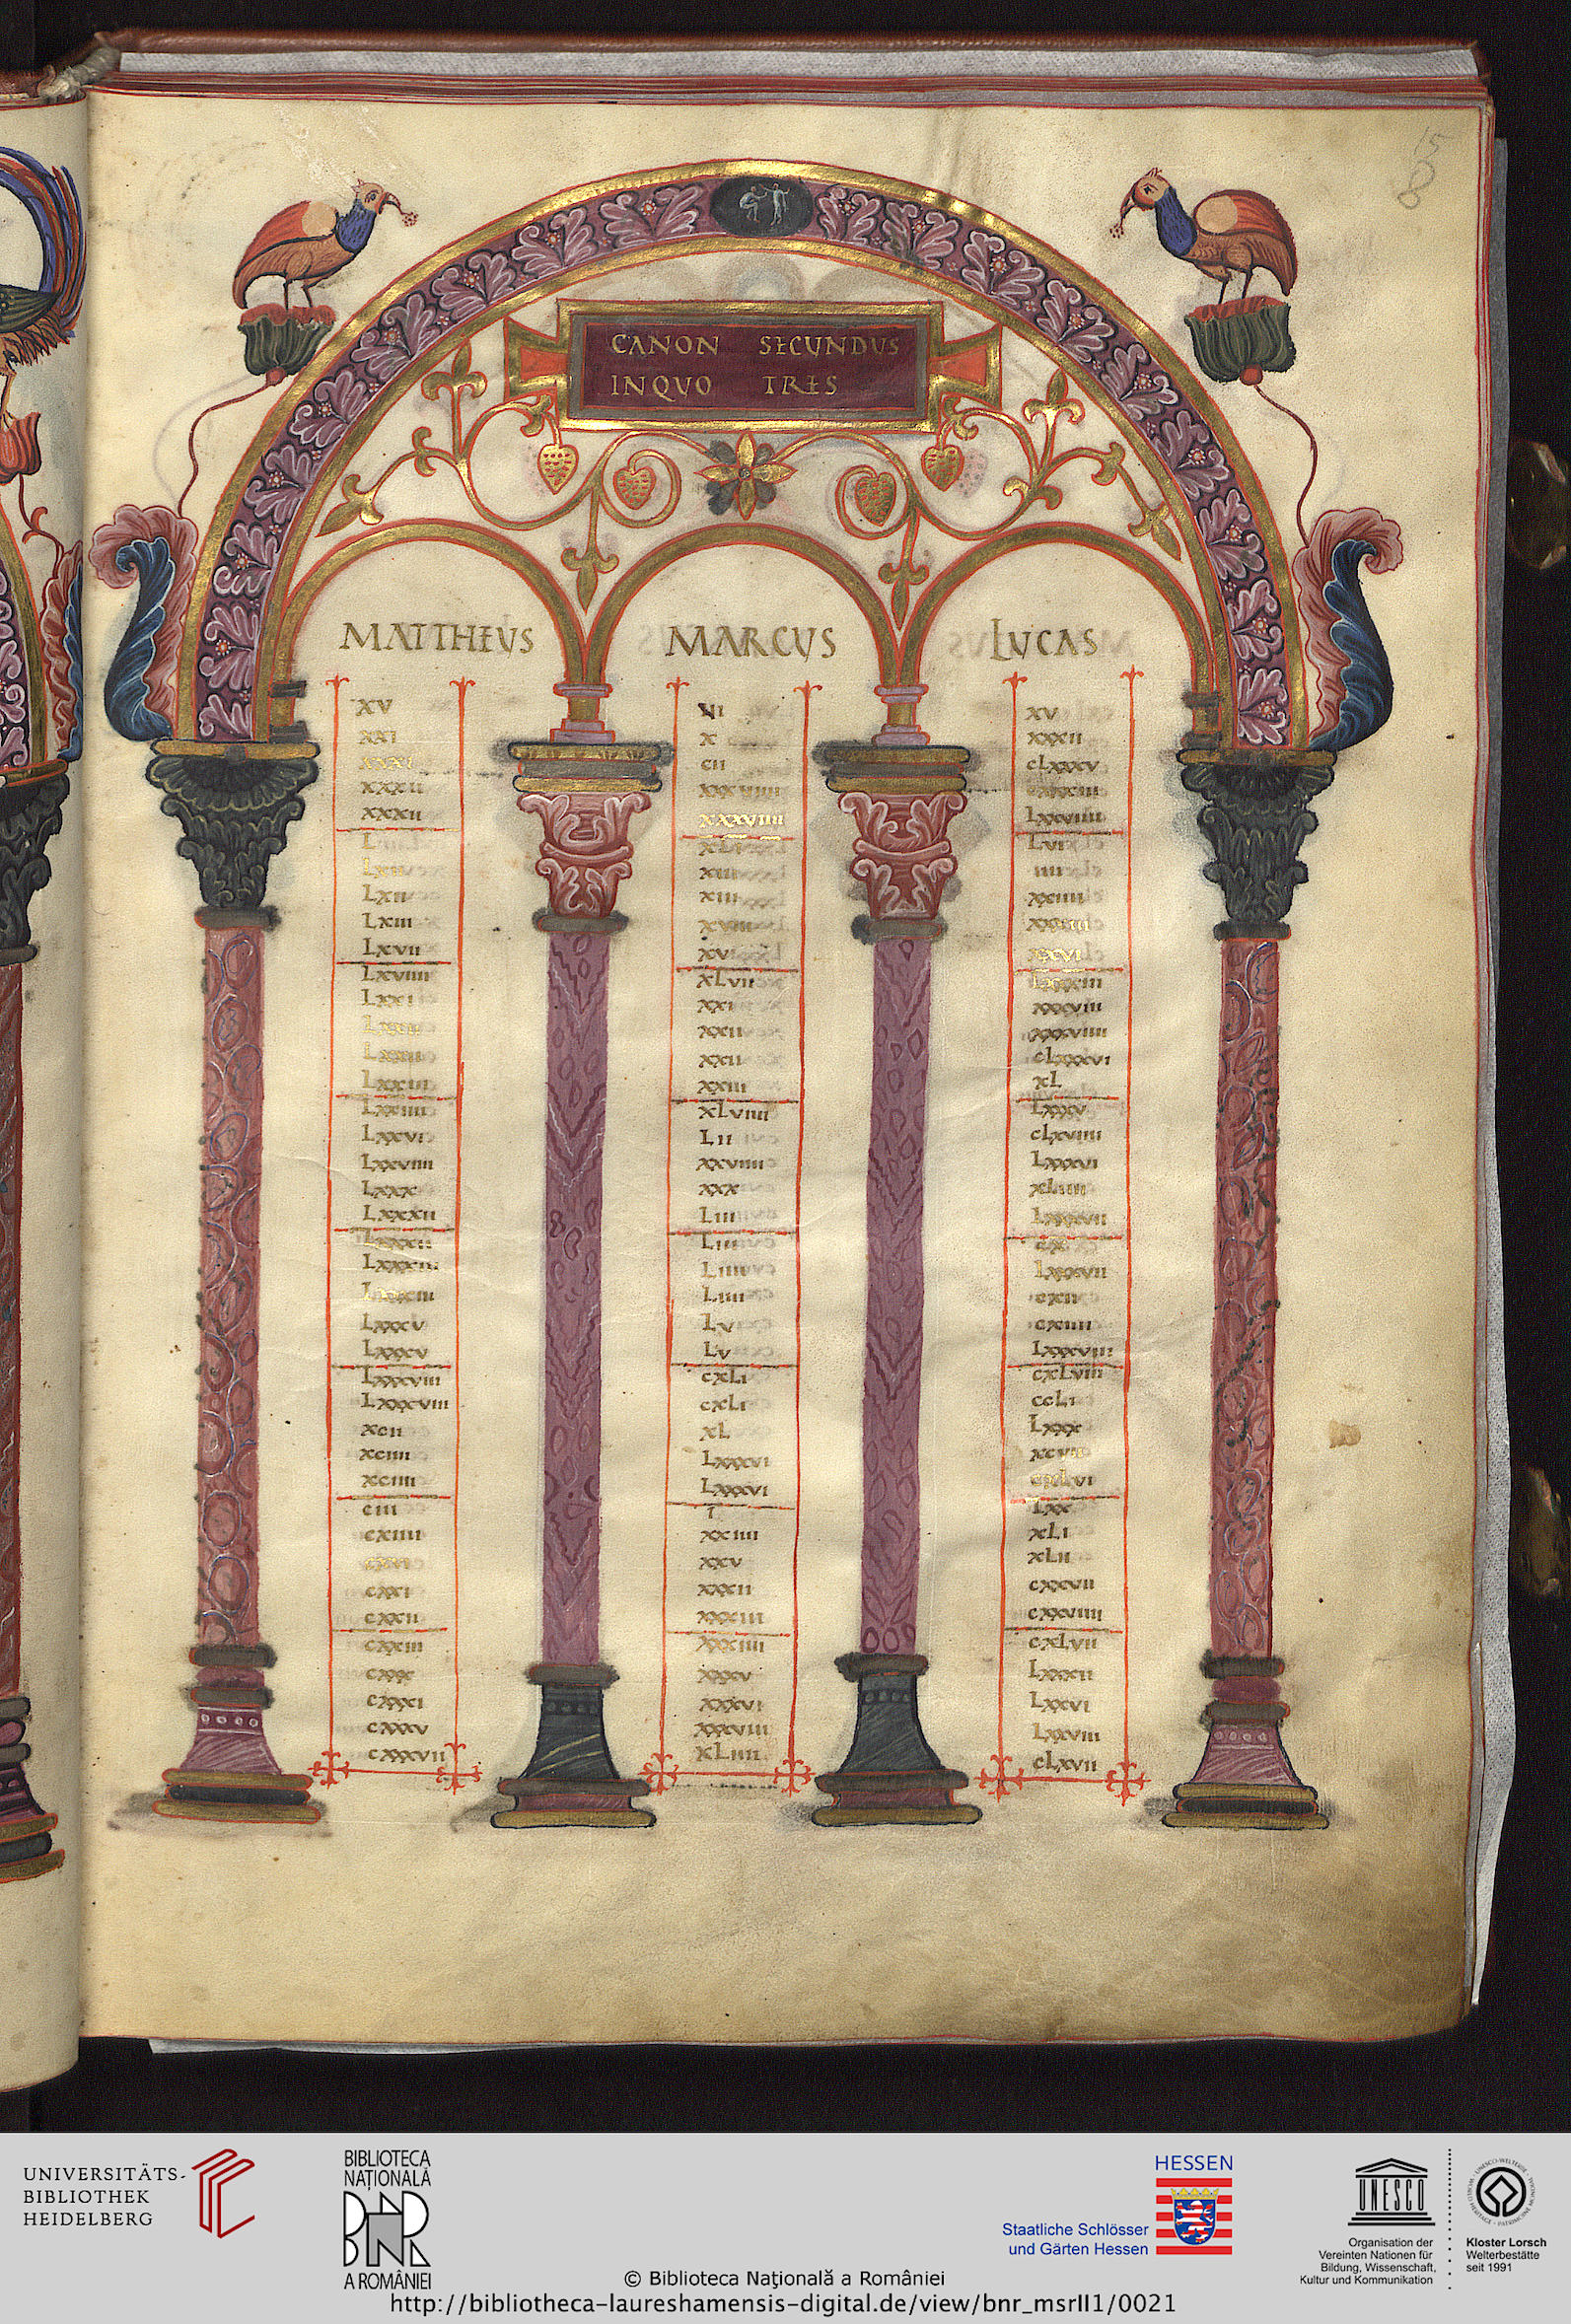 15
8
CANON SECUNDUS
INQVO TRES
MATTHEVS MARCUS LUCAS
XV VI XV
XXI X XXXII
XXXI CII CLXXXV
XXXII XXXVIIII
XXXII XXXVIIII LXXVIIII
L XLI LVI
LXII XIII IIII
LXII XIII XXIIII
LXIII XVIII XXXIII
LXVII XV XXVI
LXVIIII XLVII LXXXIII
LXXI XXI XXXVIII
LXXII XXII XXXVIIII
LXXII XXII CLXXXVI
LXXIII XXIII XL
LXXIIII XLVIIII LXXXV
LXXVI LII CLXVIIII
LXXVIIII XXVIIII LXXXVI
LXXX XXX XLIIII
LXXXII LIII LXXXVII
LXXXII LIII CX
LXXXIII LIIII LXXXVII
LXXXIII LIIII CXII
LXXXV LV CXIIII
LXXXV LV LXXXVIII
LXXXVIII CXLI CXLVIII
LXXXVIII CXLI CCLI
XCII XL LXXX
XCIIII LXXXVI XCVII
XCIIII LXXXVI CXLVI
CIII I LXX
CXIIII XXIIII XLI
CXVI XXV XLII
CXXI XXXII CXXVII
CXXII XXXIII CXXVIIII
CXXIII XXXIIII CXLVII
CXXX XXXV LXXXII
CXXXI XXXVI LXXVI
CXXXV XXXVIII LXXVIII
CXXXVII XLIIII CLXVII
UNIVERSITÄTS-
BIBLIOTHEK
HEIDELBERG
BIBLIOTECA
NAȚIONALĂ
BNR
A ROMÂNIEI
HESSEN
Staatliche Schlösser
und Gärten Hessen
UNESCO
Organisation der
Vereinten Nationen für
Bildung, Wissenschaft,
Kultur und Kommunikation
Kloster Lorsch
Welterbestätte
seit 1991
© Biblioteca Naţională a României
http://bibliotheca-laureshamensis-digital.de/view/bnr_msrII1/0021